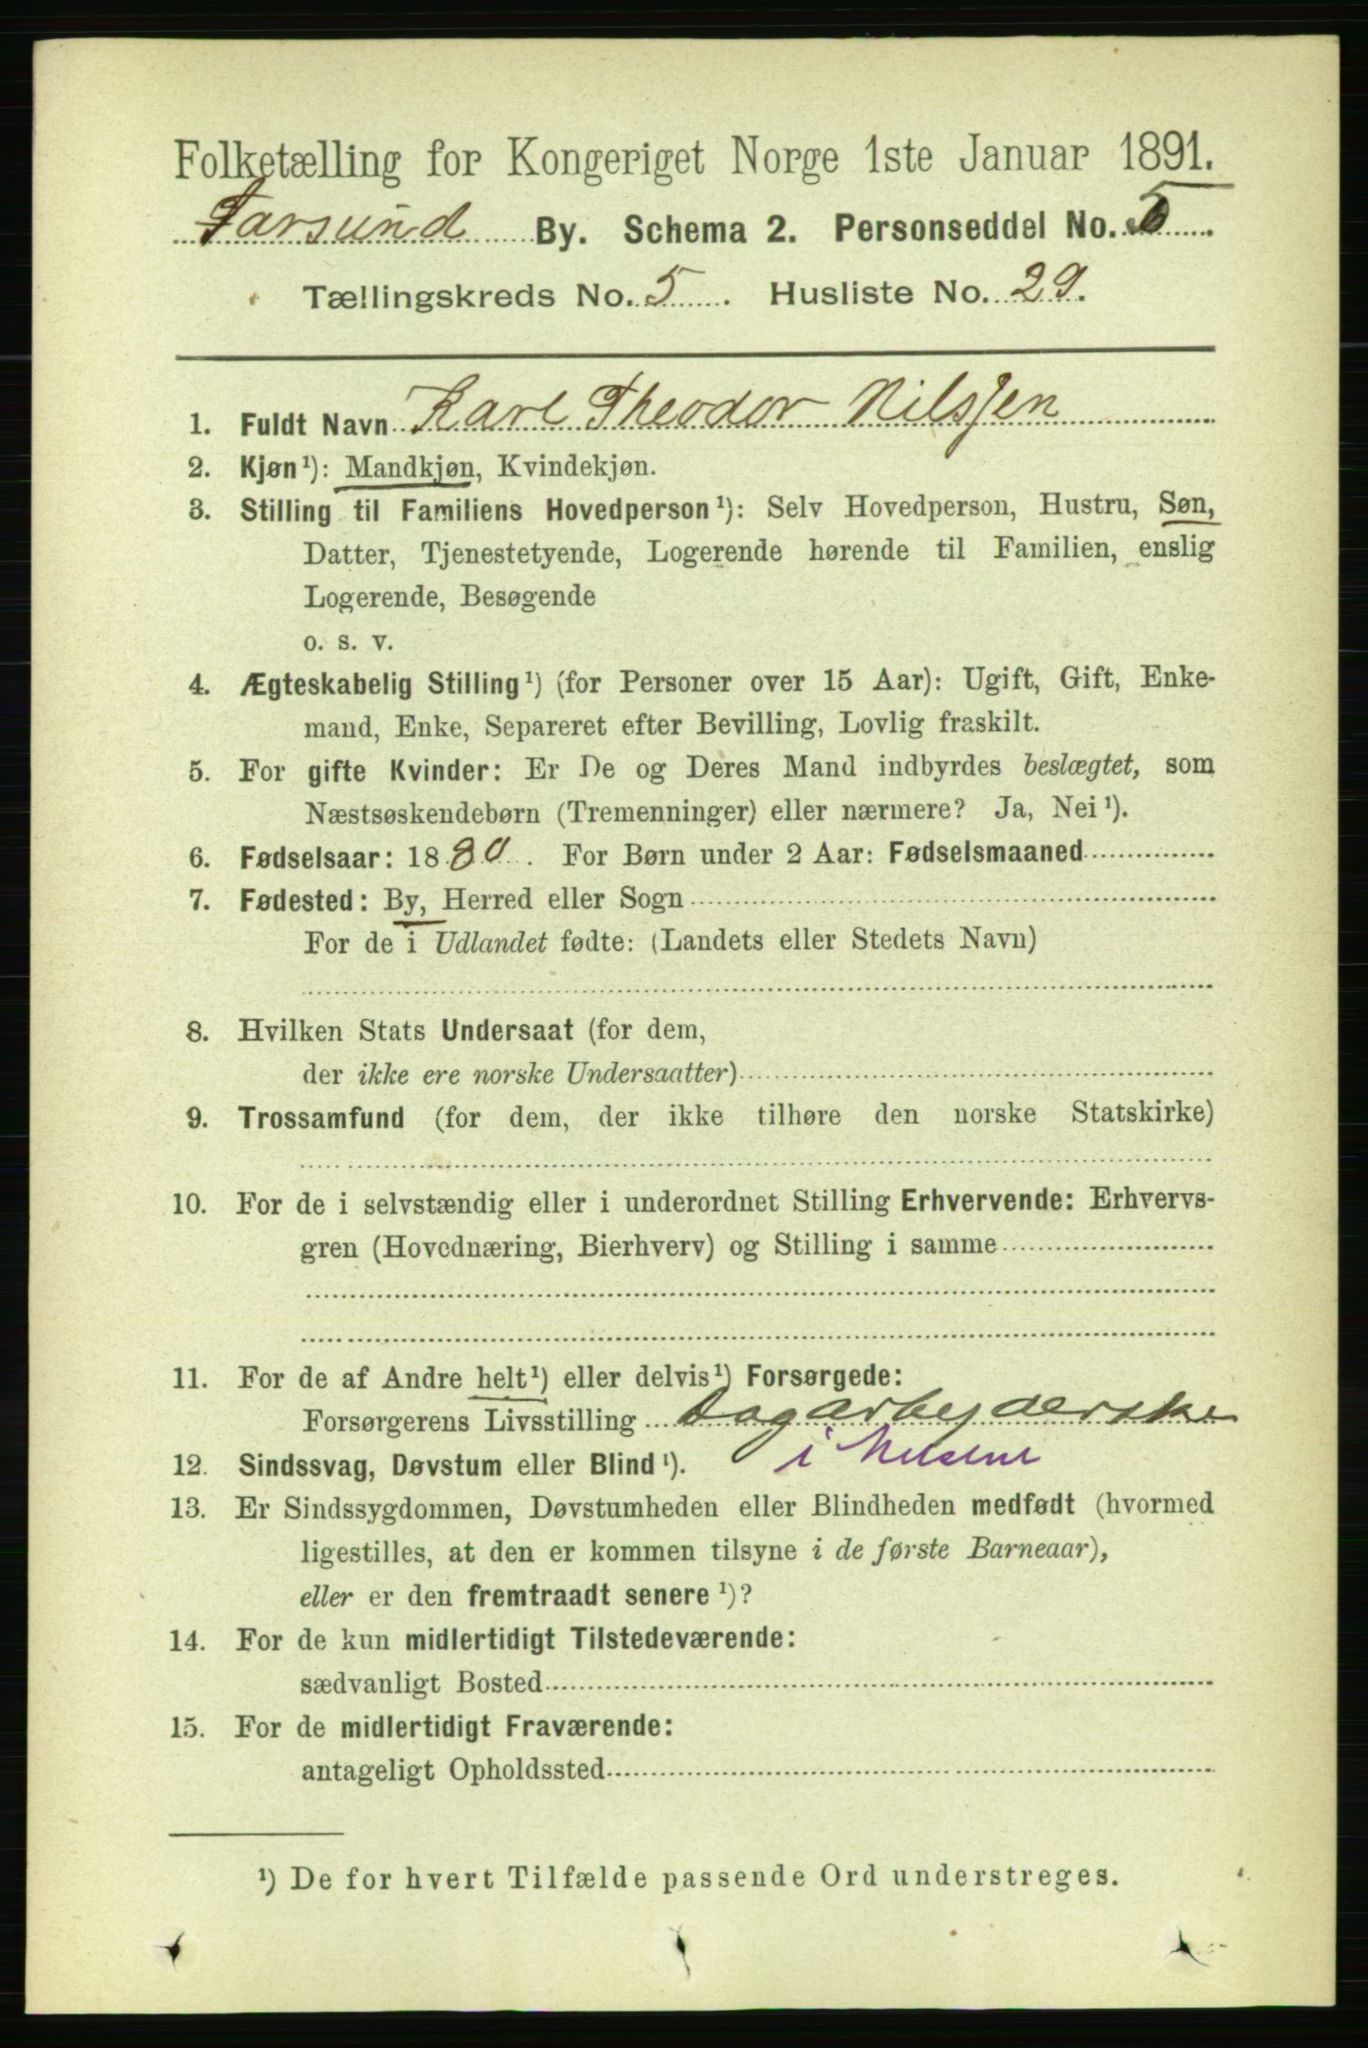 Folketælling for Kongeriget Norge 1ste Januar 1891.
Farsund By. Schema 2. Personseddel No. 5
Tællingskreds No. 5. Husliste No. 29.
1. Fuldt Navn Karl Theodor Nilssen
2. Kjøn¹): Mandkjøn, Kvindekjøn.
3. Stilling til Familiens Hovedperson¹): Selv Hovedperson, Hustru, Søn,
Datter, Tjenestetyende, Logerende hørende til Familien, enslig
Logerende, Besøgende
o. s. v.
4. Ægteskabelig Stilling¹) (for Personer over 15 Aar): Ugift, Gift, Enke-
mand, Enke, Separeret efter Bevilling, Lovlig fraskilt.
5. For gifte Kvinder: Er De og Deres Mand indbyrdes beslægtet, som
Næstsøskendebørn (Tremenninger) eller nærmere? Ja, Nei¹).
6. Fødselsaar: 1880. For Børn under 2 Aar: Fødselsmaaned
7. Fødested: By, Herred eller Sogn
For de i Udlandet fødte: (Landets eller Stedets Navn)
8. Hvilken Stats Undersaat (for dem,
der ikke ere norske Undersaatter)
9. Trossamfund (for dem, der ikke tilhøre den norske Statskirke)
10. For de i selvstændig eller i underordnet Stilling Erhvervende: Erhvervs-
gren (Hovednæring, Bierhverv) og Stilling i samme
11. For de af Andre helt¹) eller delvis¹) Forsørgede:
Forsørgerens Livsstilling Dagarbejderske
i
12. Sindssvag, Døvstum eller Blind¹).
13. Er Sindssygdommen, Døvstumheden eller Blindheden medfødt (hvormed
ligestilles, at den er kommen tilsyne i de første Barneaar),
eller er den fremtraadt senere¹)?
14. For de kun midlertidigt Tilstedeværende:
sædvanligt Bosted
15. For de midlertidigt Fraværende:
antageligt Opholdssted
¹) De for hvert Tilfælde passende Ord understreges.